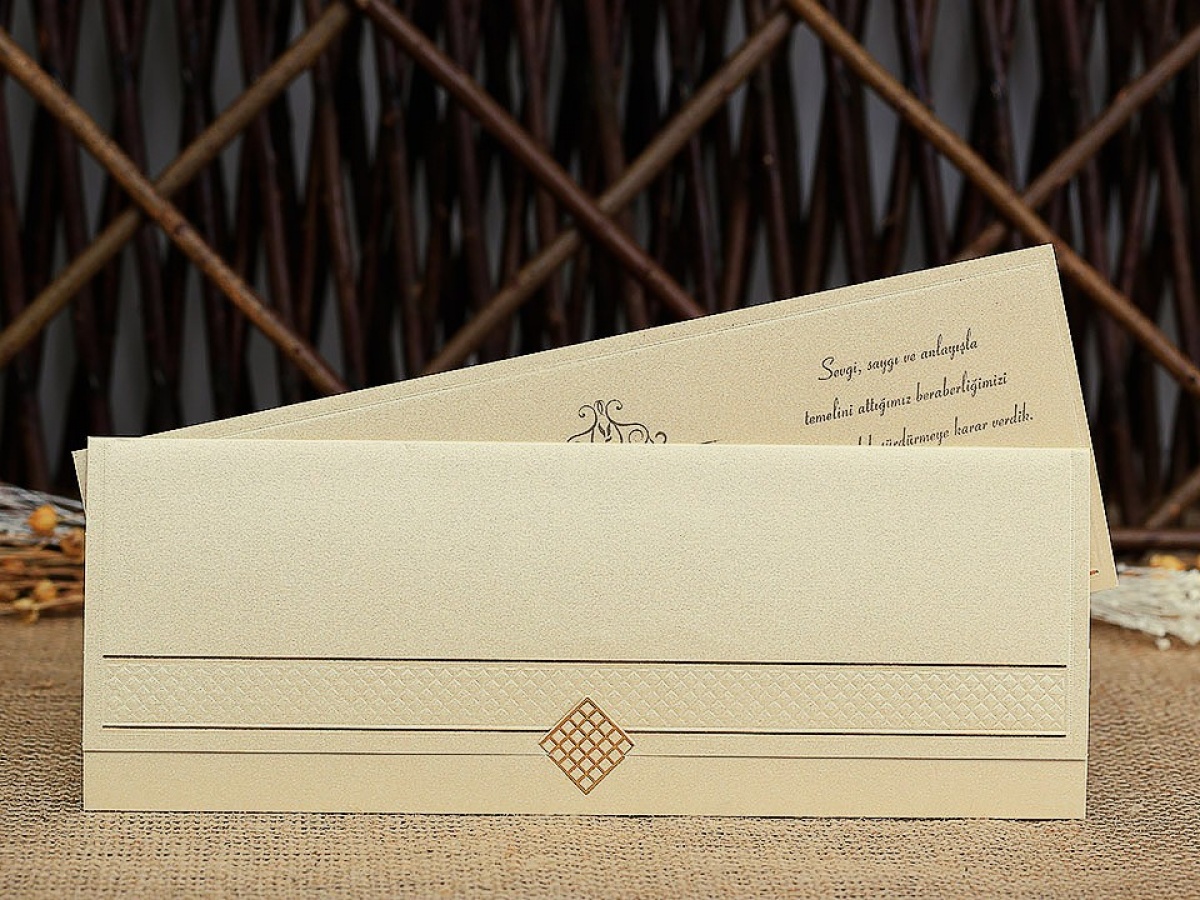 Sevgi, saygı ve anlayışla
temelini attığımız beraberliğimizi
sürdürmeye karar verdik.